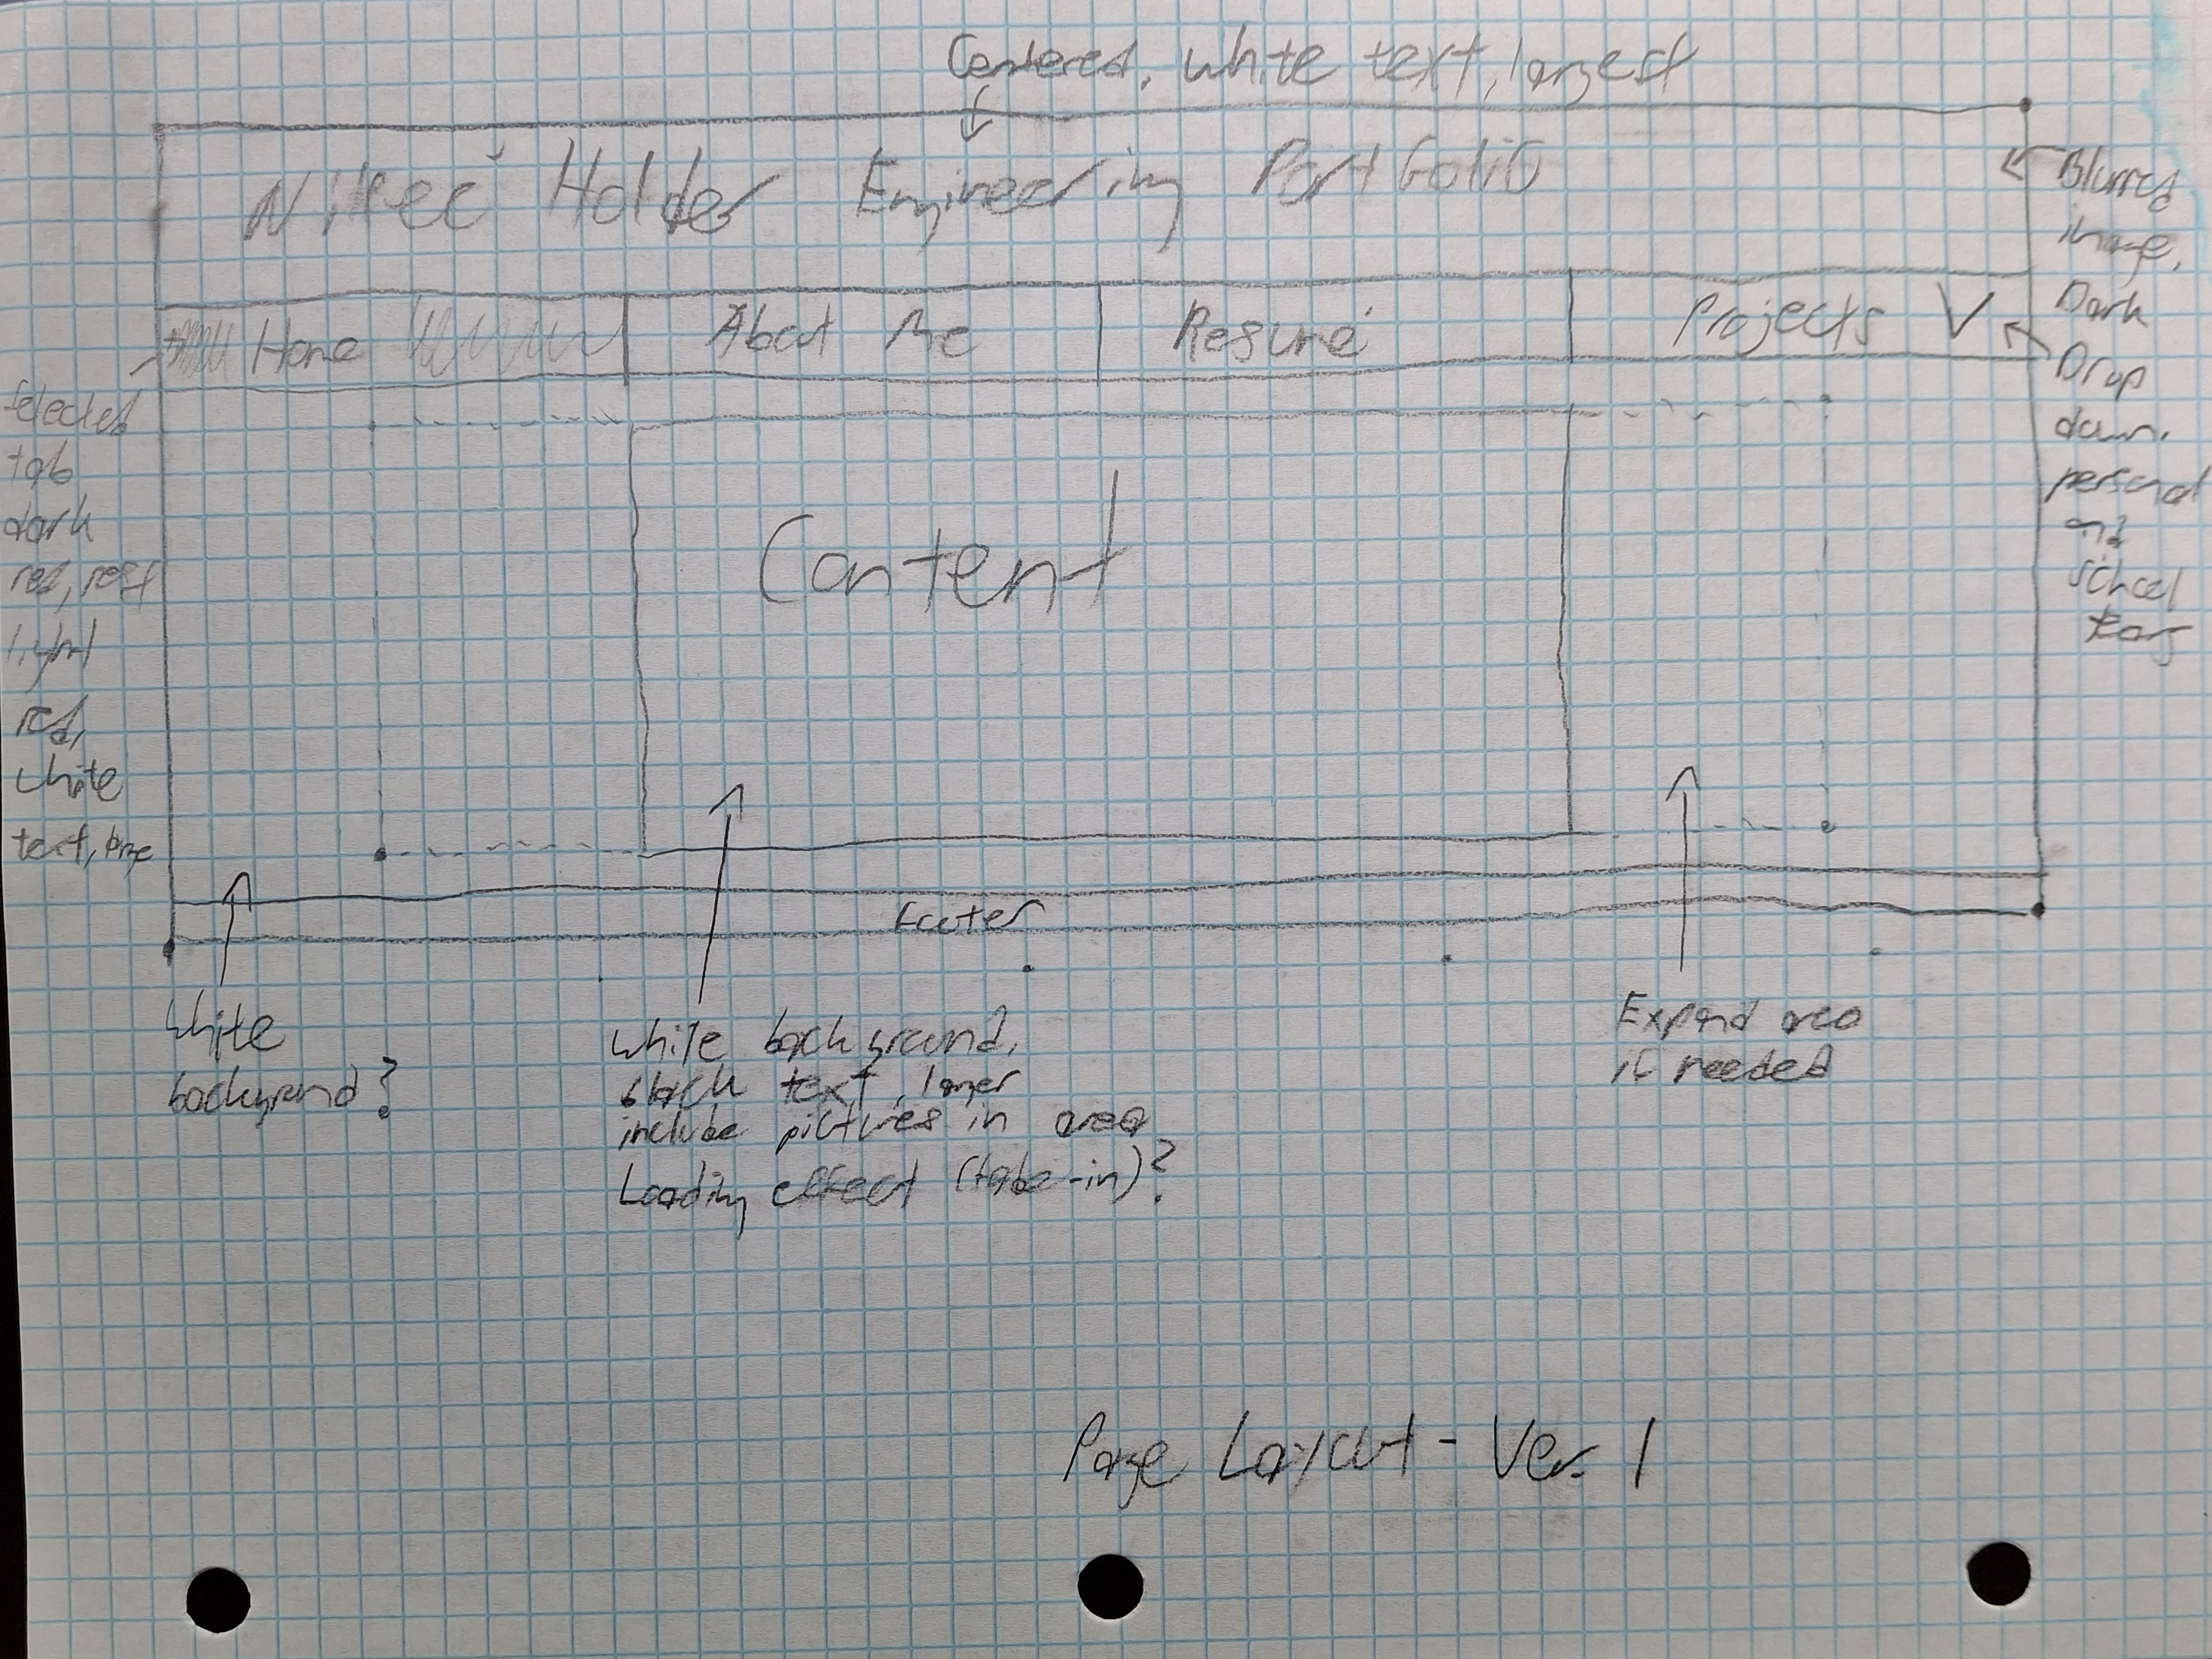 Centered, white text, largest
Holder Engineering Portfolio
Home About Me Resumé Projects V
Blurred
image,
Dark
Drop
down.
personal
and
school
Selected
tab
dark
red, rest
light
red,
white
text, large
Content
Footer
White
background?
White background,
black text, larger
include pictures in area
Loading effect (fade-in)?
Expand area
if needed
Page Layout - Ver. 1